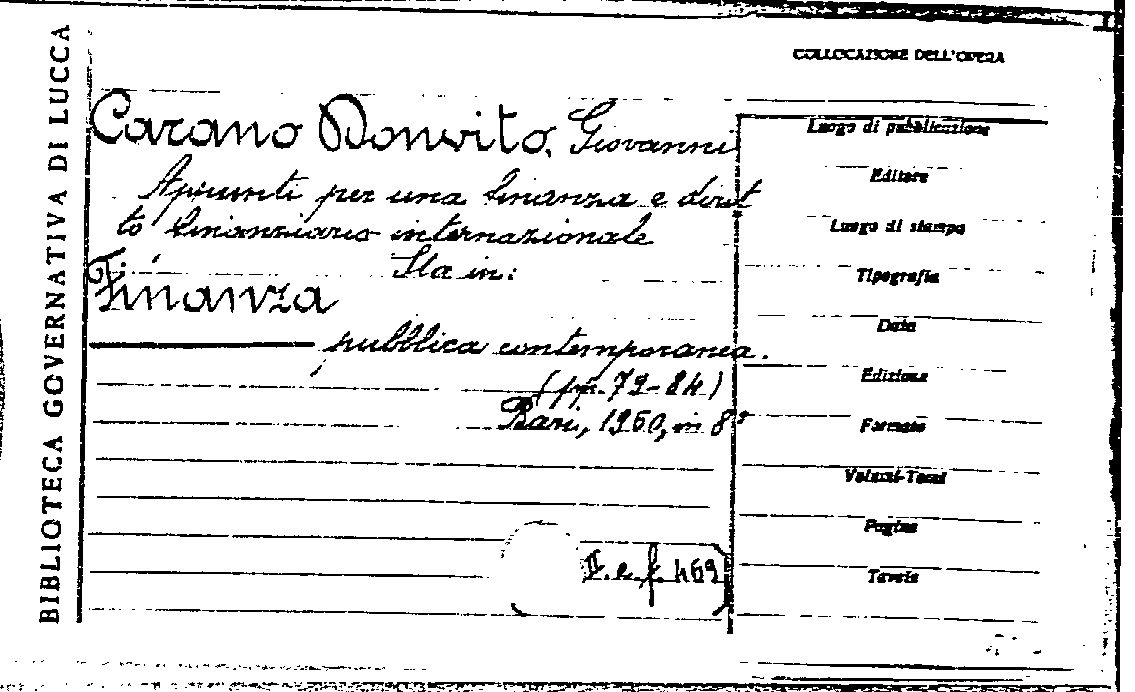 BIBLIOTECA GOVERNATIVA DI LUCCA
COLLOCAZIONE DELL'OPERA
Carano Donvito, Giovanni
Appunti per una finanza e dirit
to finanziario internazionale
Sta in:
Finanza
pubblica contemporanea.
(pp. 79-84)
Bari, 1950, in 8°
469
Luogo di pubblicazione
Editore
Luogo di stampa
Tipografia
Data
Edizione
Formato
Volumi-Tomi
Pagine
Tavole